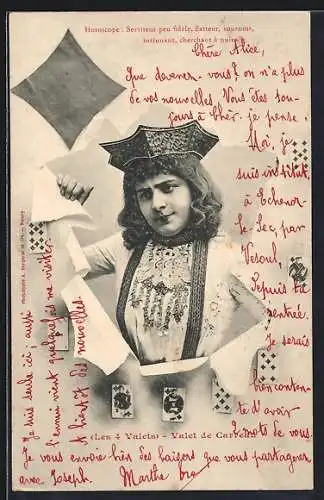 Horoscope : Serviteur peu fidèle, flatteur, sournois,
intrigant, cherchant à nuire.
Chère Alice,
Que devenez-vous? on n'a plus
de vos nouvelles. Vous êtes tou-
jours à Cher. je pense.
Moi, je
suis institut.
à Echenoz-
le-Sec, par
Vesoul,
Depuis la
rentrée.
Je serais
bien conten-
te d'avoir
mots de vous.
Je suis seule ici, aussi
l'ennui vient quelquefois me visiter.
A bientôt des nouvelles.
Photographie A. Bergeret et Cie. - Nancy
(Les 4 Valets) - Valet de Carreau
Je vous envoie bien des baisers que vous partagerez
avec Joseph. Marthe